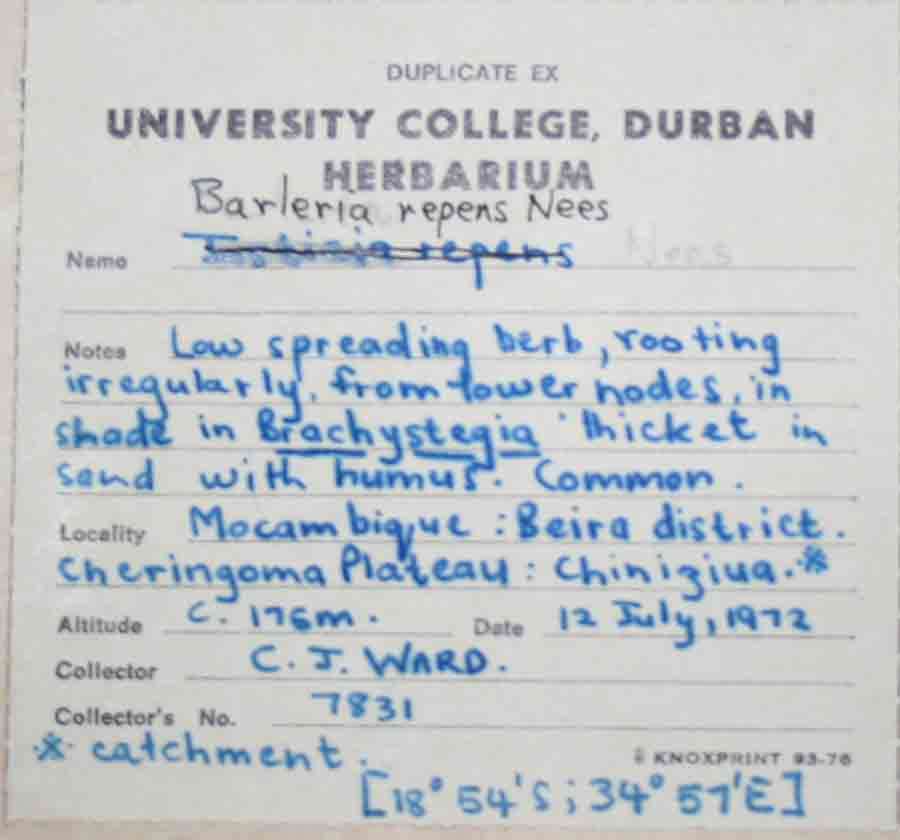 DUPLICATE EX
UNIVERSITY COLLEGE, DURBAN
HERBARIUM
Barleria repens Nees
Name repens Nees
Notes Low spreading herb, rooting
irregularly, from lower nodes, in
shade in Brachystegia thicket in
sand with humus. Common.
Locality Mocambique : Beira district.
Cheringoma Plateau : Chiniziua.*
Altitude c. 176m. Date 12 July, 1972
Collector C. J. WARD.
Collector's No. 7831
* catchment.
© KNOXPRINT 93-76
[18° 54'S ; 34° 57'E]